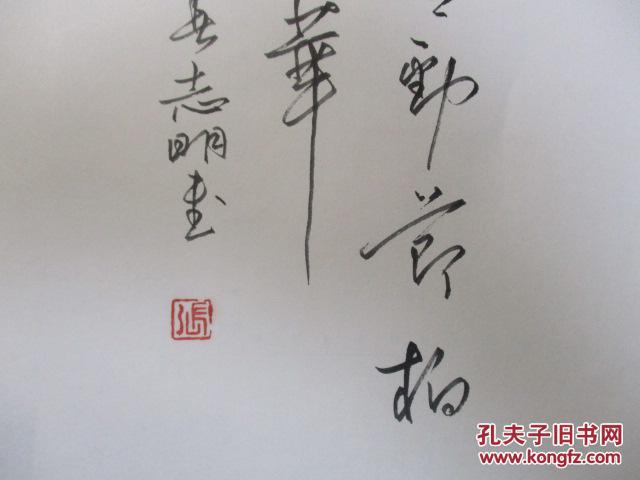 勁節柏
華
長志明書
張
孔夫子旧书网
www.kongfz.com